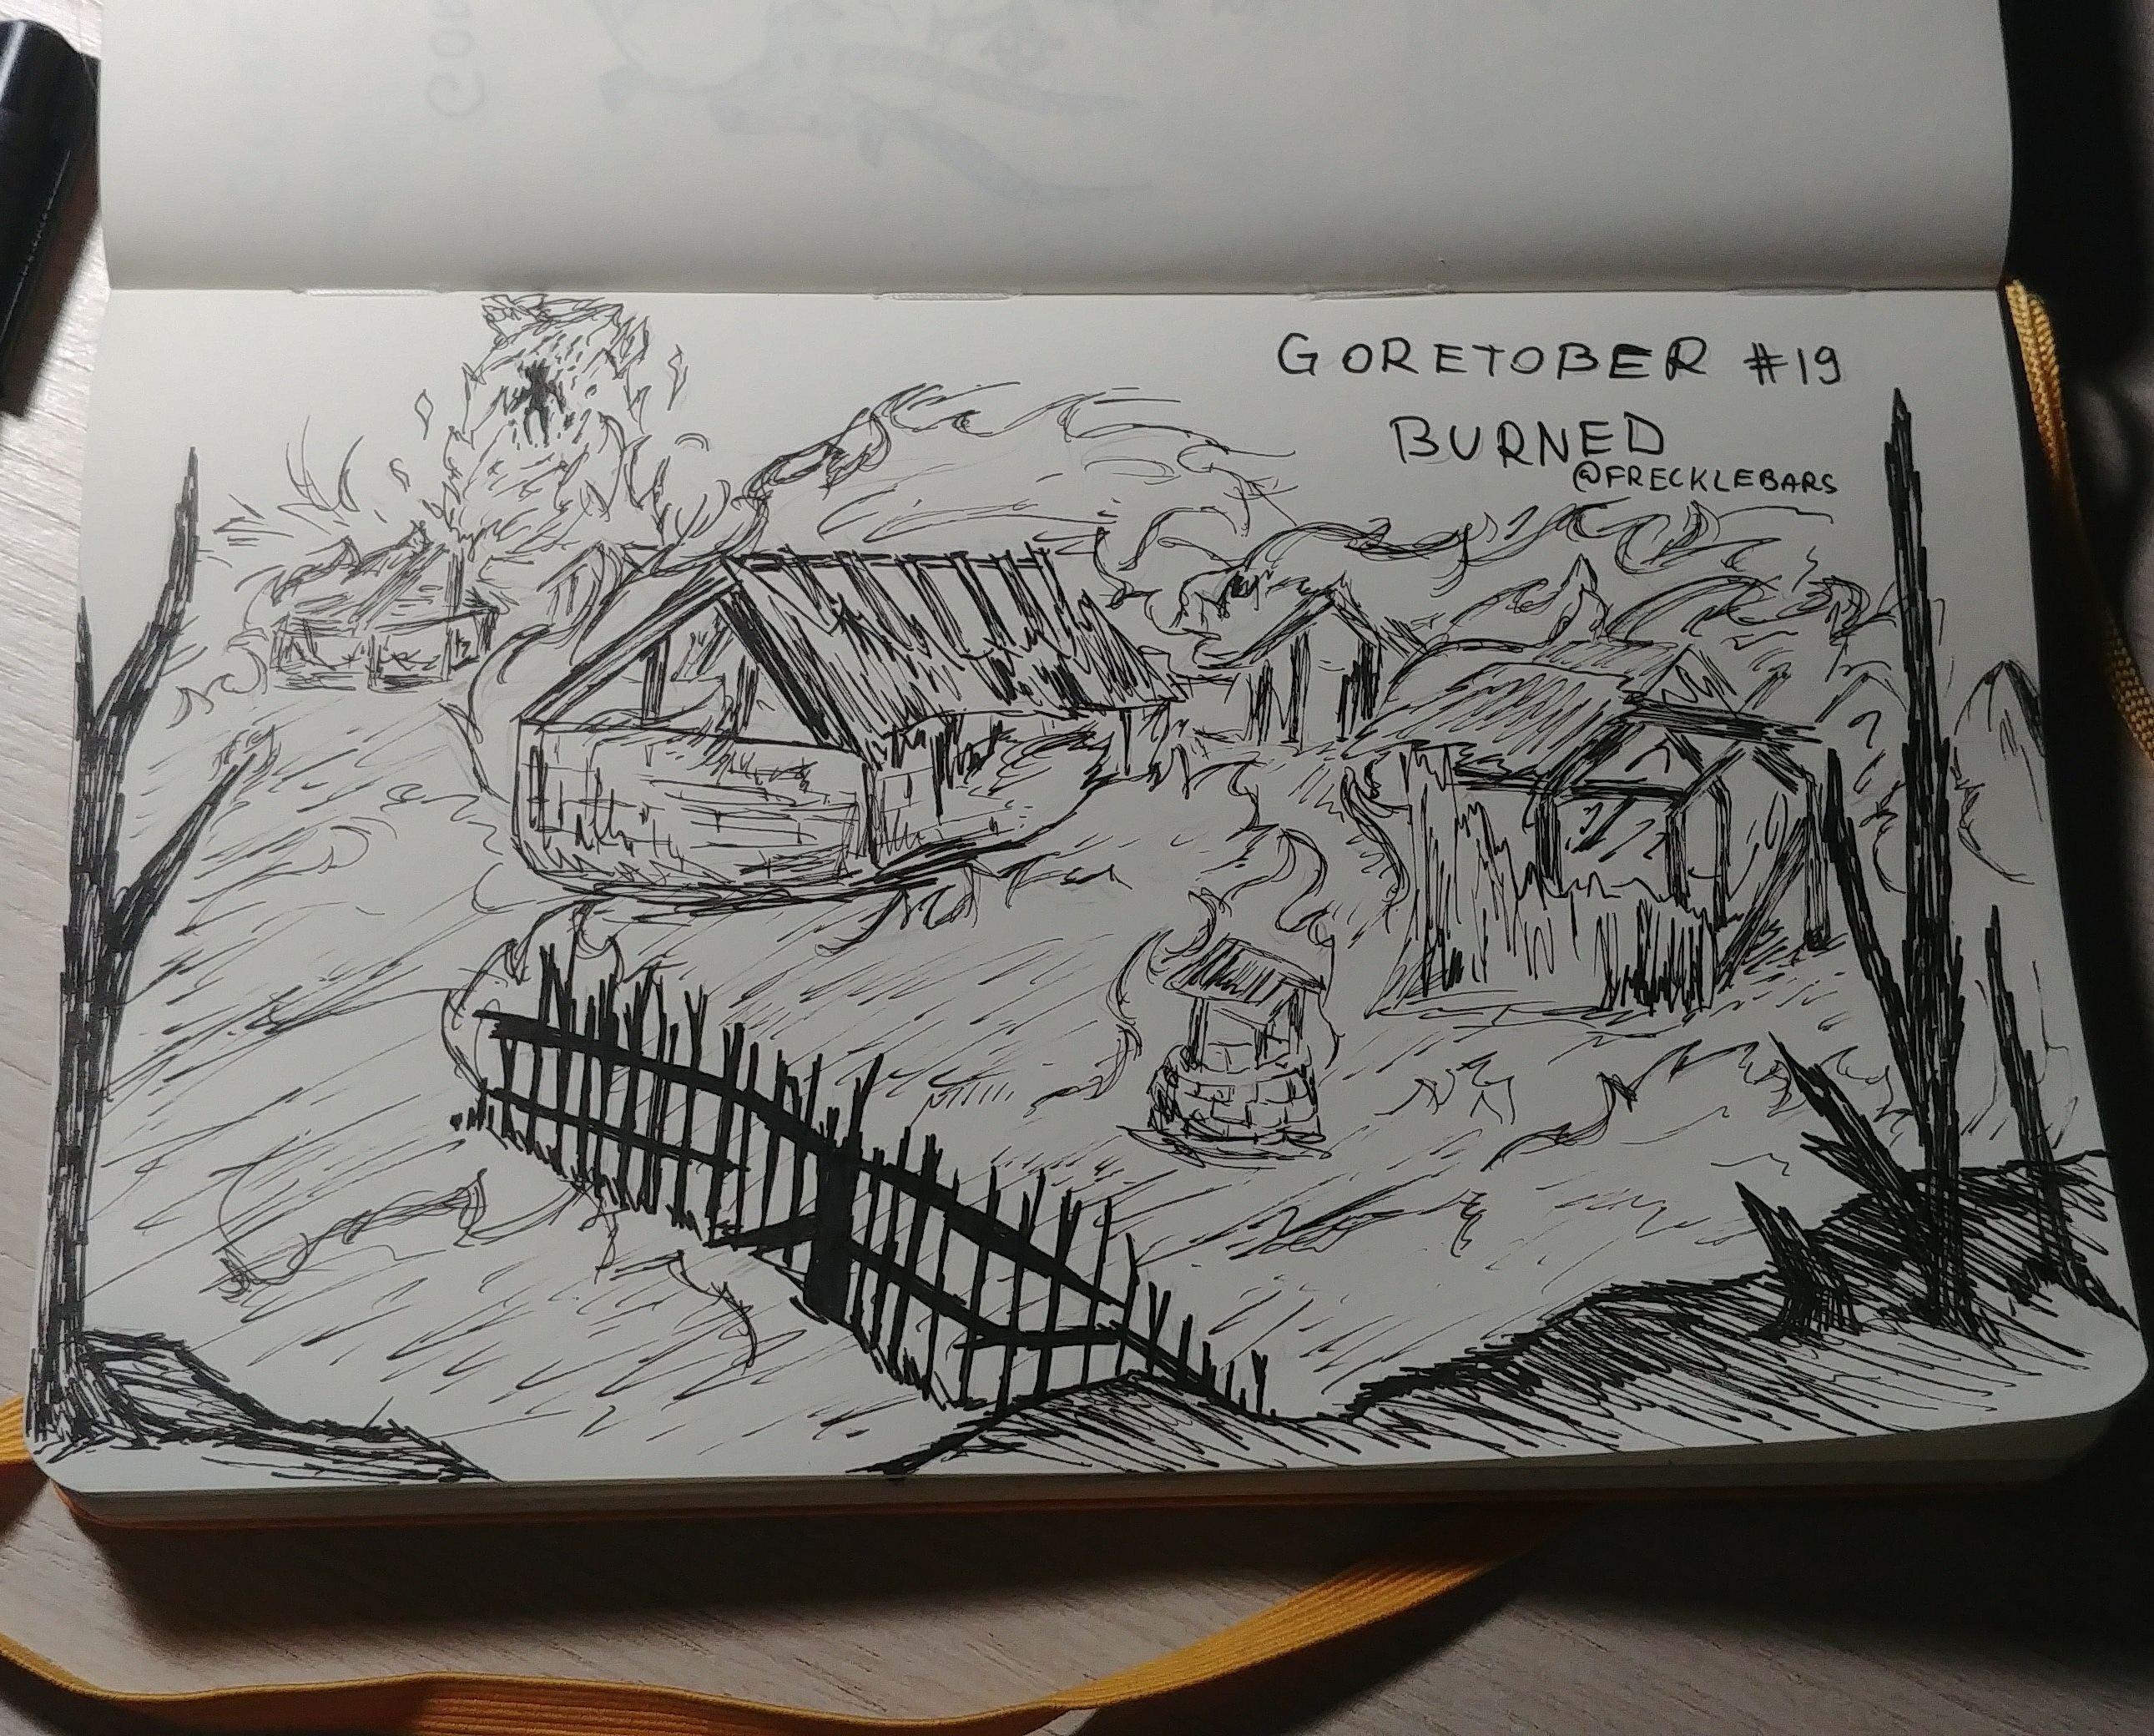 GORETOBER #19
BURNED
@FRECKLEBARS